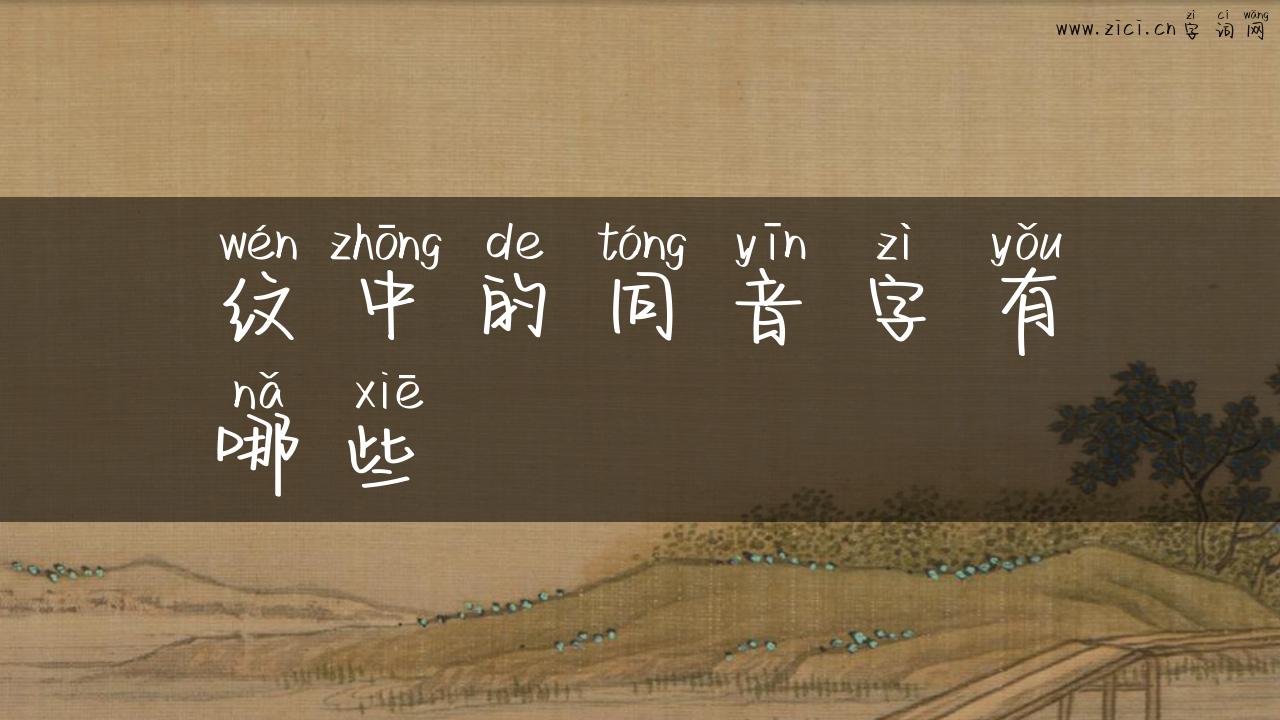 zì cí wǎng
www.zici.cn 字 词 网
wén zhōng de tóng yīn zì yǒu
纹 中 的 同 音 字 有
nǎ xiē
哪 些